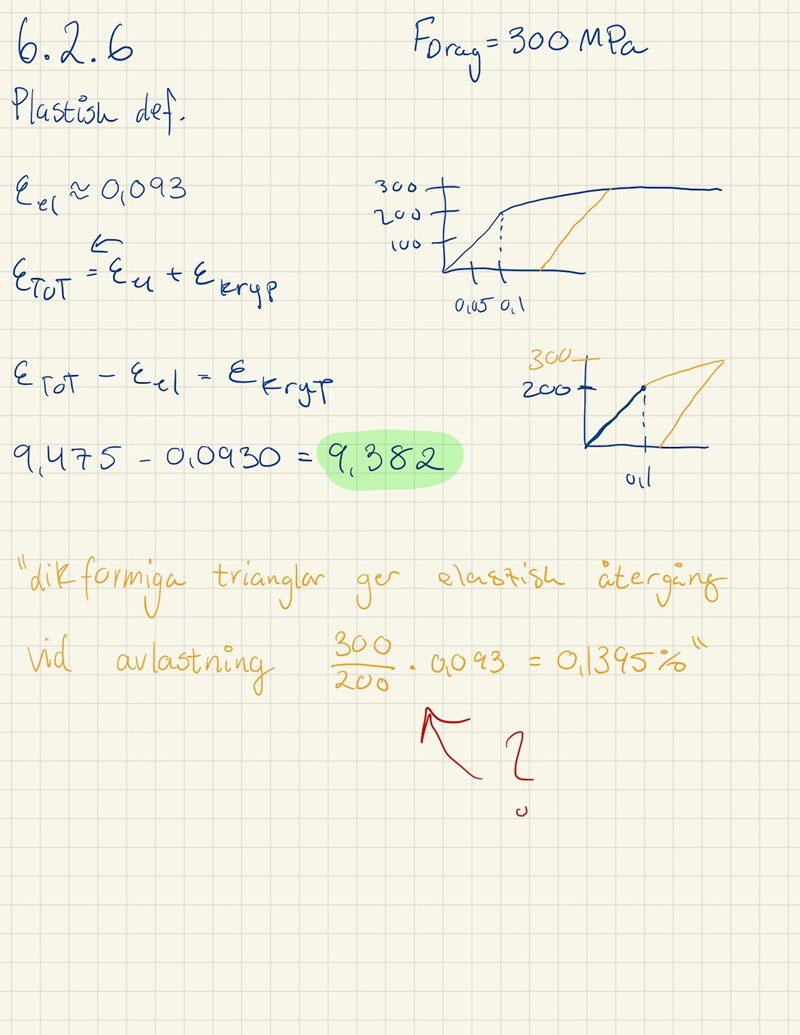 6.2.6
F_Drag = 300 MPa
Plastish def.
ε_el ≈ 0,093
300
200
100
0,05 0,1
←
ε_TOT = ε_el + ε_kryp
ε_TOT - ε_el = ε_kryp
300
200
0,1
9,475 - 0,0930 = 9,382
"likformiga trianglar ger elastish återgång
vid avlastning 300/200 · 0,093 = 0,1395%"
?